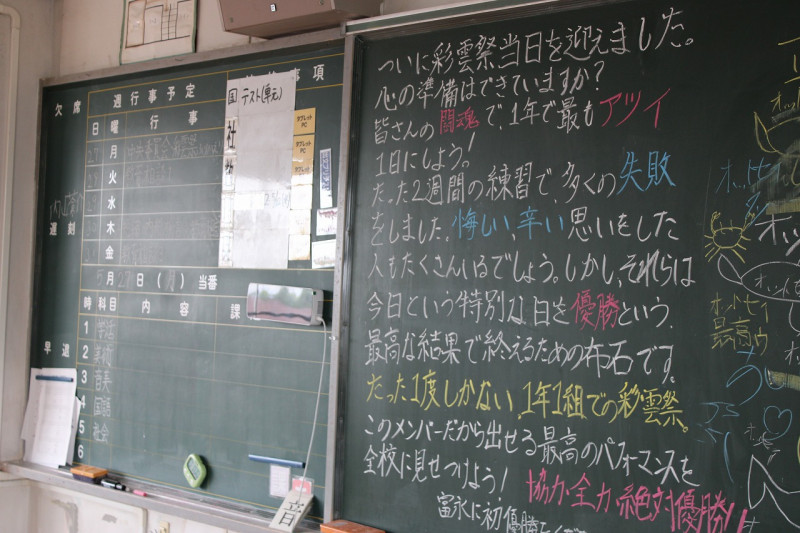 欠席
週行事予定
事項
日 曜 行事
月
火
水
木
金
遅刻
国 テスト(単元)
社
タブレット PC
タブレット PC
月27日( )当番
時 科目 内容 課
1 学活
2 美術
3 音楽
4 国語
5 社会
6
早退
音
ついに彩雲祭当日を迎えました。
心の準備はできていますか?
皆さんの闘魂で、1年で最もアツイ
1日にしよう!
たった2週間の練習で、多くの失敗
をしました。悔しい、辛い思いをした
人もたくさんいるでしょう。しかし、それらは
今日という特別な日を優勝という、
最高な結果で終えるための布石です。
たった1度しかない、1年1組での彩雲祭。
このメンバーだから出せる最高のパフォーマンスを
全校に見せつけよう!
協力・全力・絶対優勝!
富永に初優勝を
オットセイ
最高ゥ